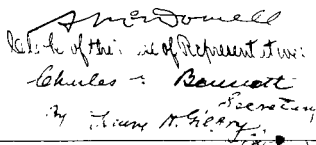 S McDowell
Clerk of the of Representatives
Charles Bennett
Secretary
By Henry H. Gilfry